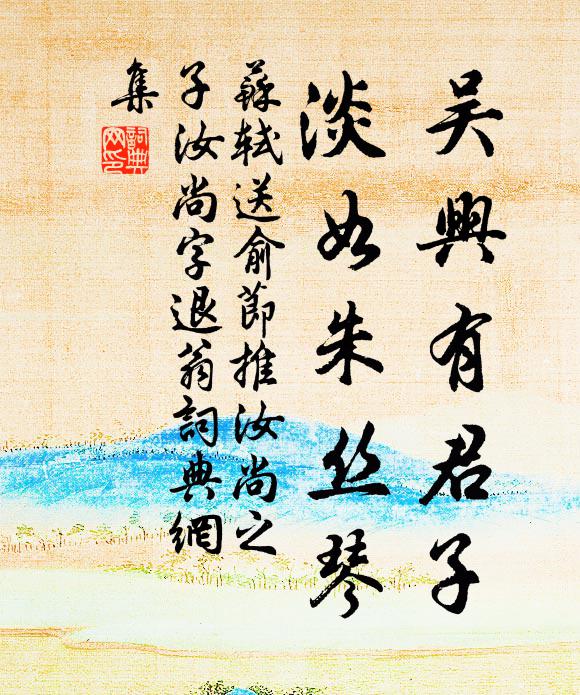 吴興有君子
淡如朱丝琴
蘇軾送俞節推汝尚之
子汝尚字退翁詞典網
集
詞典网印